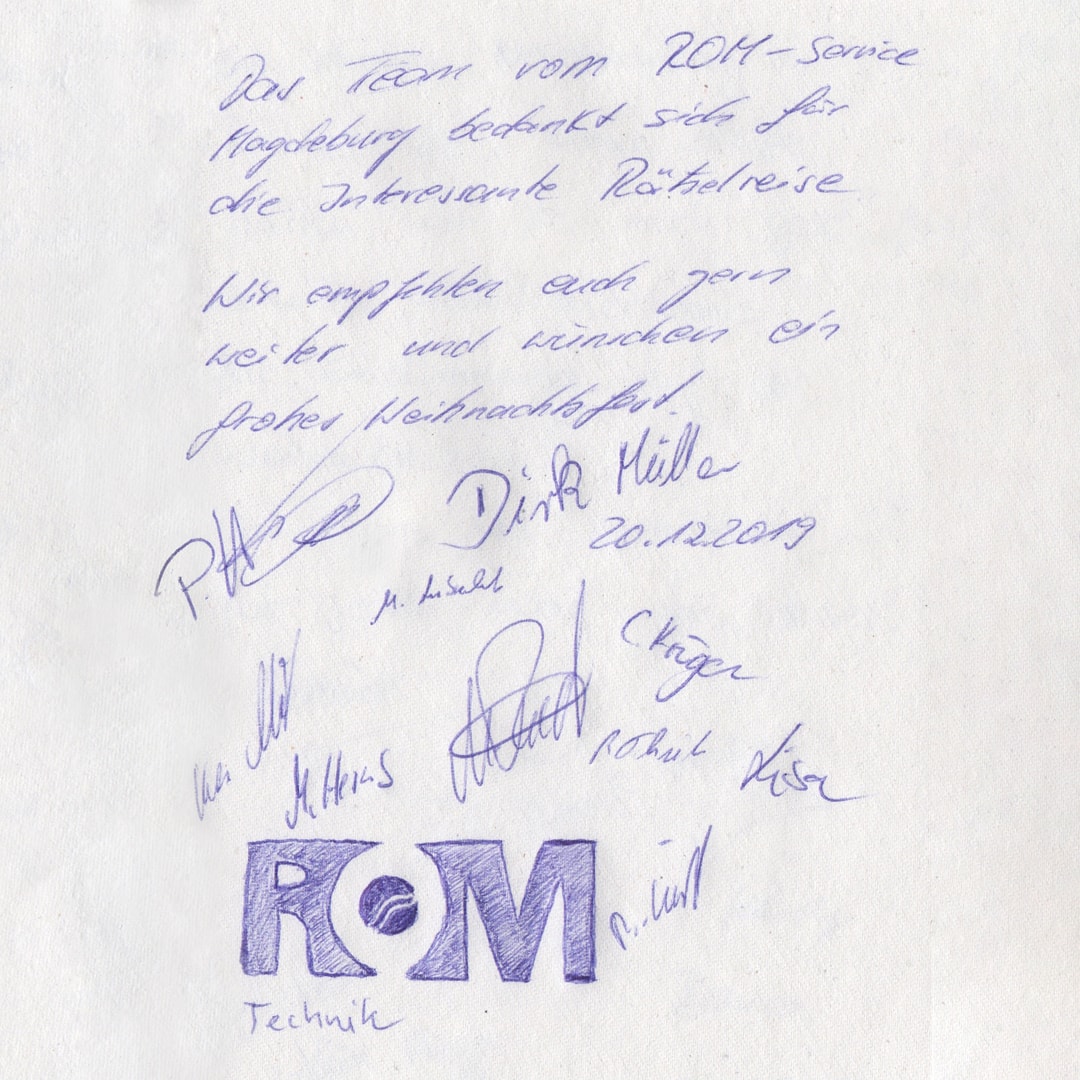 Das Team vom ROM-Service
Magdeburg bedankt sich für
die Interessante Rätselreise
Wir empfehlen euch gern
weiter und wünschen ein
frohes Weihnachtsfest.
Dirk Müller
20.12.2019
P.
M.
C Krüger
M. Herms
Lisa
ROM
Technik